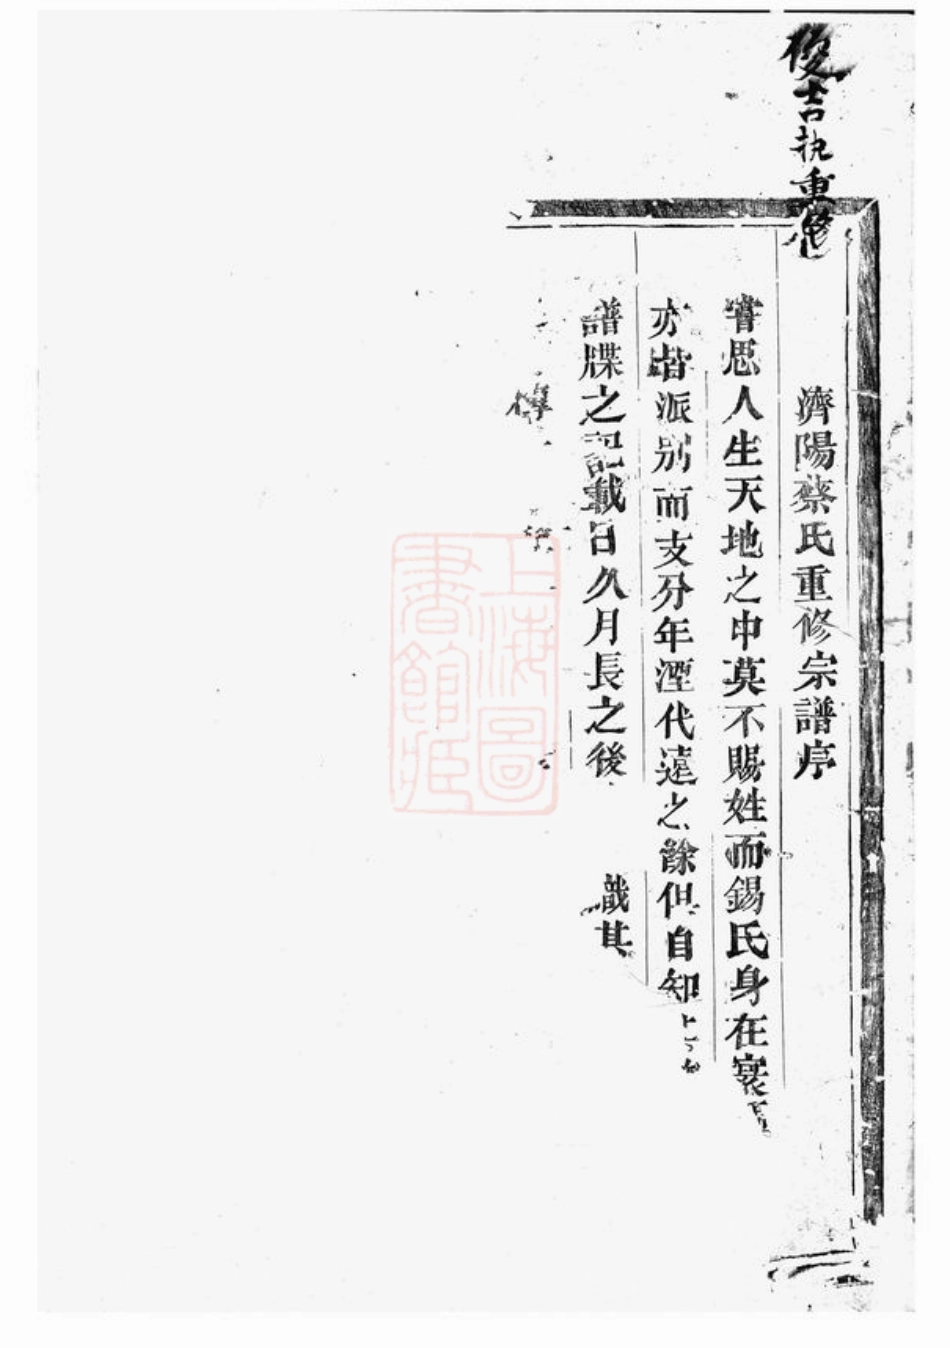 俊吉執重修
濟陽蔡氏重修宗譜序
嘗思人生天地之中莫不賜姓而錫氏身在寰
亦皆派別而支分年湮代遠之餘但自知
譜牒之記載日久月長之後 識其
上海圖
書館藏